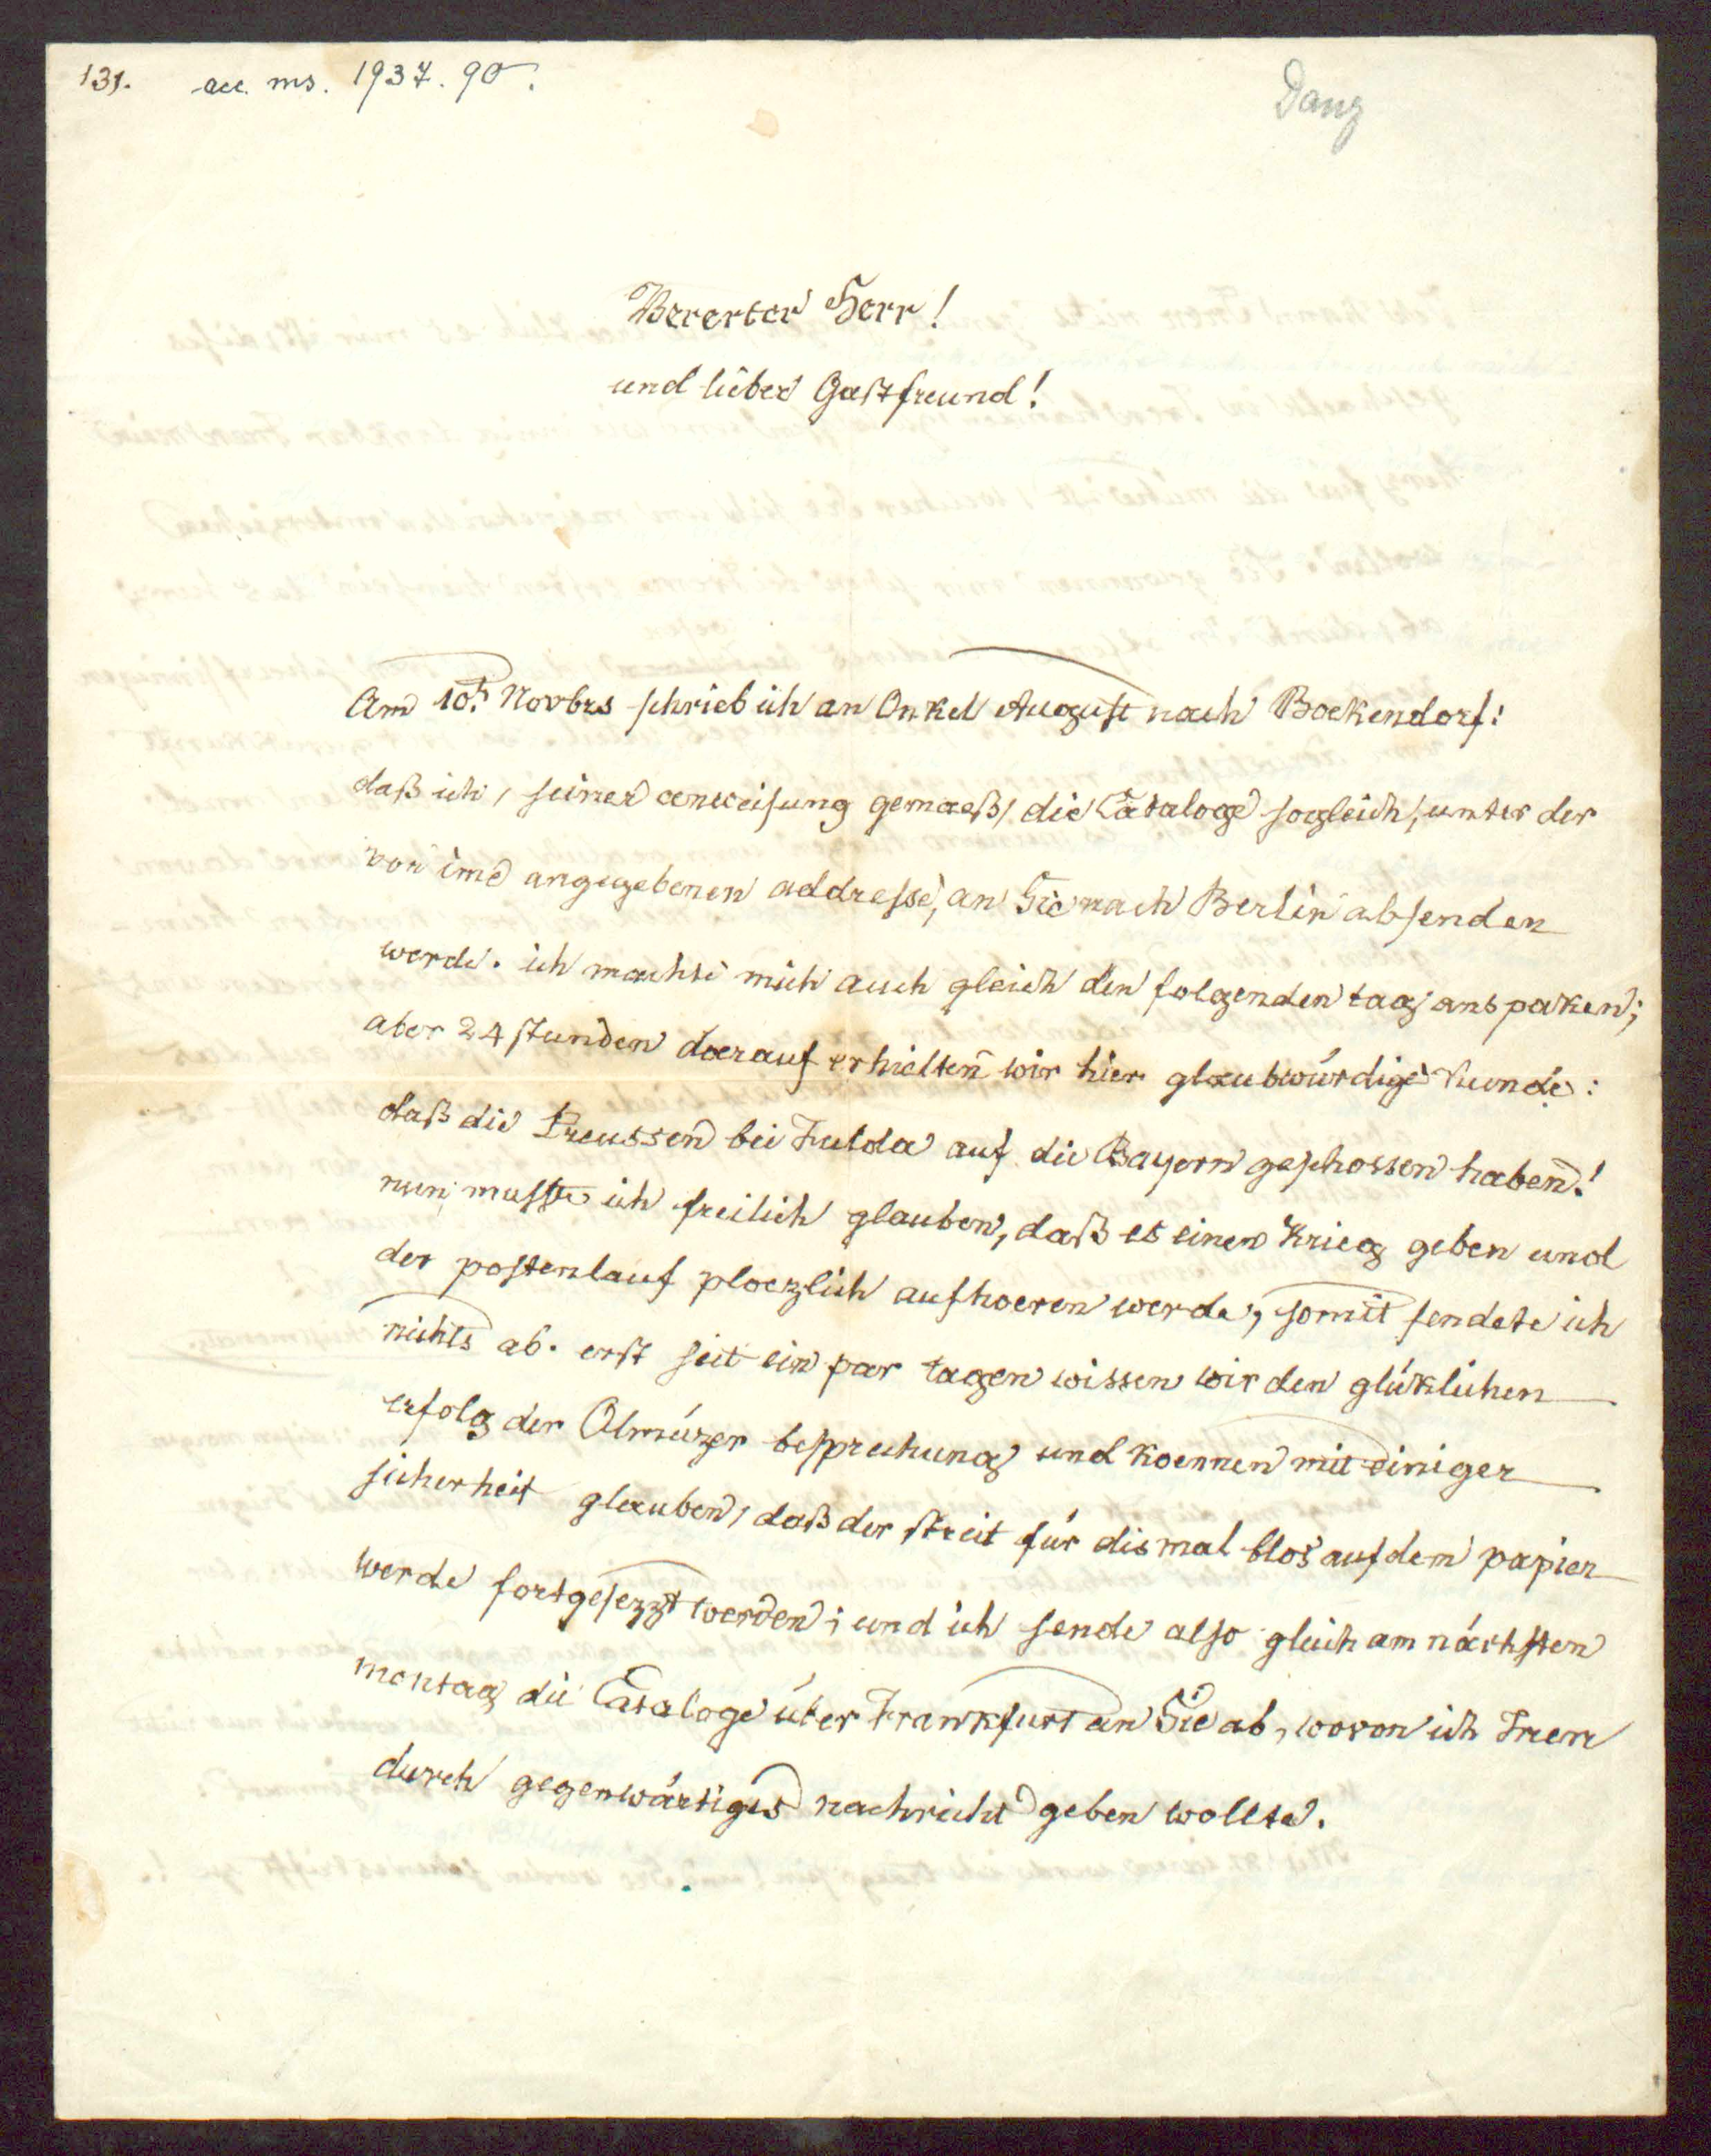 131. acc. ms. 1937. 90.
Danz
Vererter Herr!
und lieber Gastfreund!
Am 10t. Novbrs schrieb ich an Onkel August nach Boekendorf:
daß ich, seiner anweisung gemaeß, die Cataloge sogleich, unter der
von ime angegebenen addresse, an Sie nach Berlin absenden
werde. ich machte mich auch gleich den folgenden tag ans paken;
aber 24 stunden darauf erhielten wir hier glaubwürdige kunde:
daß die Preussen bei Fulda auf die Bayern geschossen haben!
nun musste ich freilich glauben, daß es einen Krieg geben und
der postenlauf ploezlich aufhoeren werde, somit sendete ich
nichts ab. erst seit ein par tagen wissen wir den glüklichen
erfolg der Olmüzer besprechung und koennen mit einiger
sicherheit glauben, daß der streit für dismal blos auf dem papier
werde fortgesezzt werden; und ich sende also gleich am nächsten
montag die Cataloge über Frankfurt an Sie ab, wovon ich Inen
durch gegenwärtiges nachricht geben wollte.